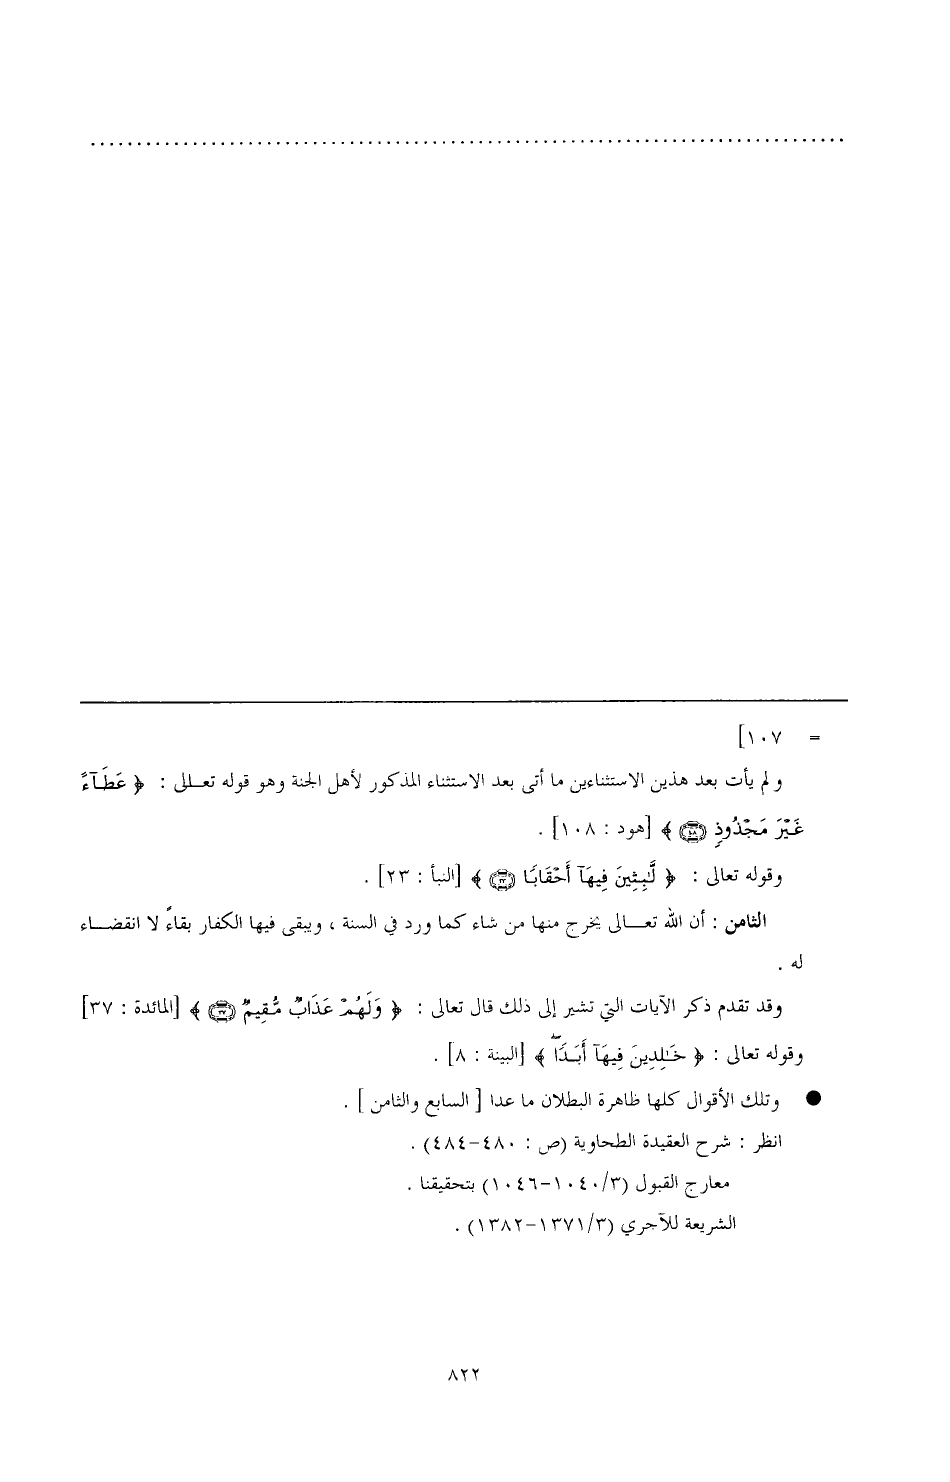 = ١٠٧]
و لم يأت بعد هذين الاستثناءين ما أتى بعد الاستثناء المذكور لأهل الجنة وهو قوله تعـــالى : ﴿ عَطَآءً
غَيْرَ مَجْذُوذٍ ﴿١٠٨﴾ ﴾ [هود : ١٠٨] .
وقوله تعالى : ﴿ لَّـٰبِثِينَ فِيهَآ أَحْقَابًا ﴿٢٣﴾ ﴾ [النبأ : ٢٣] .
الثامن : أن الله تعـــالى يخرج منها من شاء كما ورد في السنة ، ويبقى فيها الكفار بقاءً لا انقضـــاء
له .
وقد تقدم ذكر الآيات التي تشير إلى ذلك قال تعالى : ﴿ وَلَهُمْ عَذَابٌ مُّقِيمٌ ﴿٣٧﴾ ﴾ [المائدة : ٣٧]
وقوله تعالى : ﴿ خَـٰلِدِينَ فِيهَآ أَبَدًا ۖ ﴾ [البينة : ٨] .
● وتلك الأقوال كلها ظاهرة البطلان ما عدا [ السابع والثامن ] .
انظر : شرح العقيدة الطحاوية (ص : ٤٨٠-٤٨٤) .
معارج القبول (٣/ ١٠٤٠-١٠٤٦) بتحقيقنا .
الشريعة للآجري (٣/ ١٣٧١-١٣٨٢) .
٨٢٢